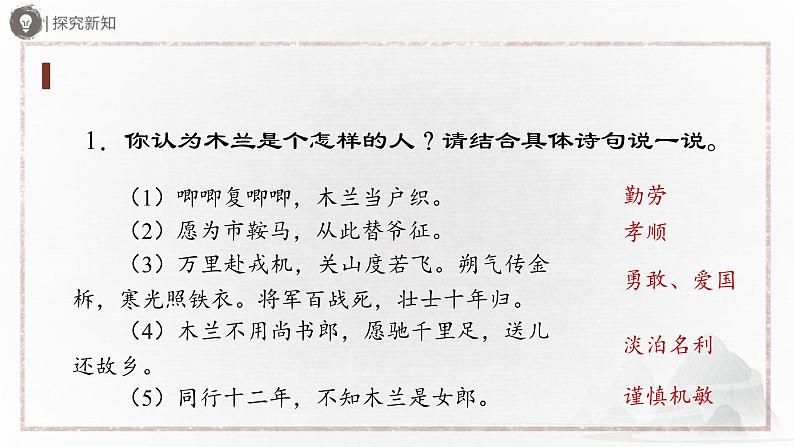 探究新知
1．你认为木兰是个怎样的人？请结合具体诗句说一说。
（1）唧唧复唧唧，木兰当户织。 勤劳
（2）愿为市鞍马，从此替爷征。 孝顺
（3）万里赴戎机，关山度若飞。朔气传金
柝，寒光照铁衣。将军百战死，壮士十年归。 勇敢、爱国
（4）木兰不用尚书郎，愿驰千里足，送儿
还故乡。 淡泊名利
（5）同行十二年，不知木兰是女郎。 谨慎机敏